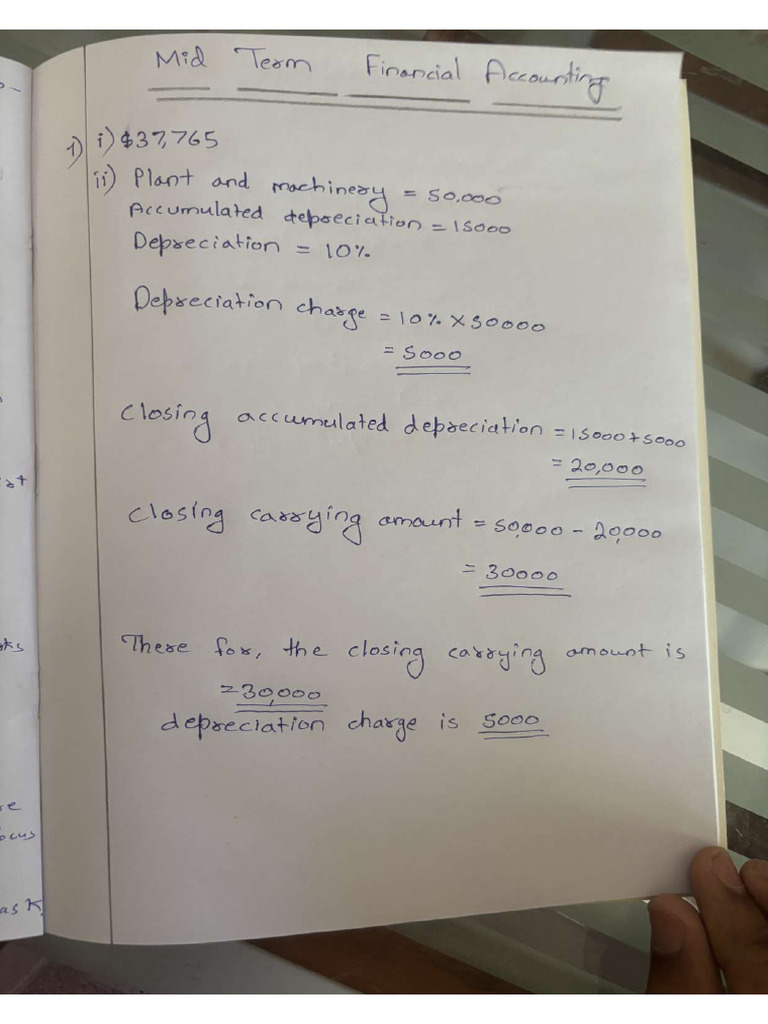 Mid Term Financial Accounting
1) i) $37,765
ii) Plant and machinery = 50,000
Accumulated depreciation = 15000
Depreciation = 10%
Depreciation charge = 10% × 50000
= 5000
Closing accumulated depreciation = 15000 + 5000
= 20,000
Closing carrying amount = 50,000 - 20,000
= 30000
There for, the closing carrying amount is
= 30,000
depreciation charge is 5000